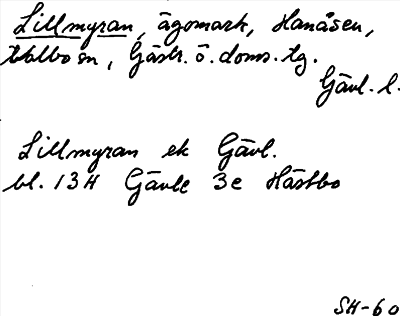 Lillmyran, ägomark, Hanåsen,
Valbo sn, Gästr. ö. doms. tg.
Gävl. l.
Lillmyran ek Gävl.
bl. 13H Gävle 3e Hästbo
SH-60